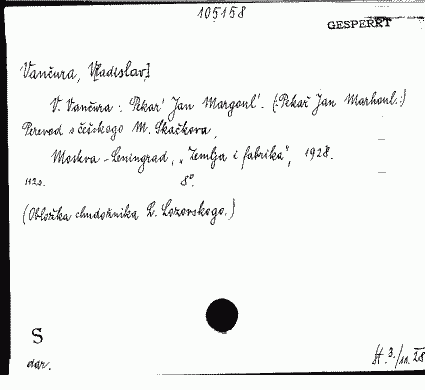 105158
GESPERRT
Vančura, V[ladislav]
V. Vančura: Pekar' Jan Margoul'. (:Pekař Jan Marhoul.:)
Perevod s češskogo M. Skačkova,
Moskva - Leningrad, "Zemlja i fabrika", 1928.
112s. 8°.
(Obložka chudožnika B. Lozovskogo.)
S
dar. H. 3./11. 28